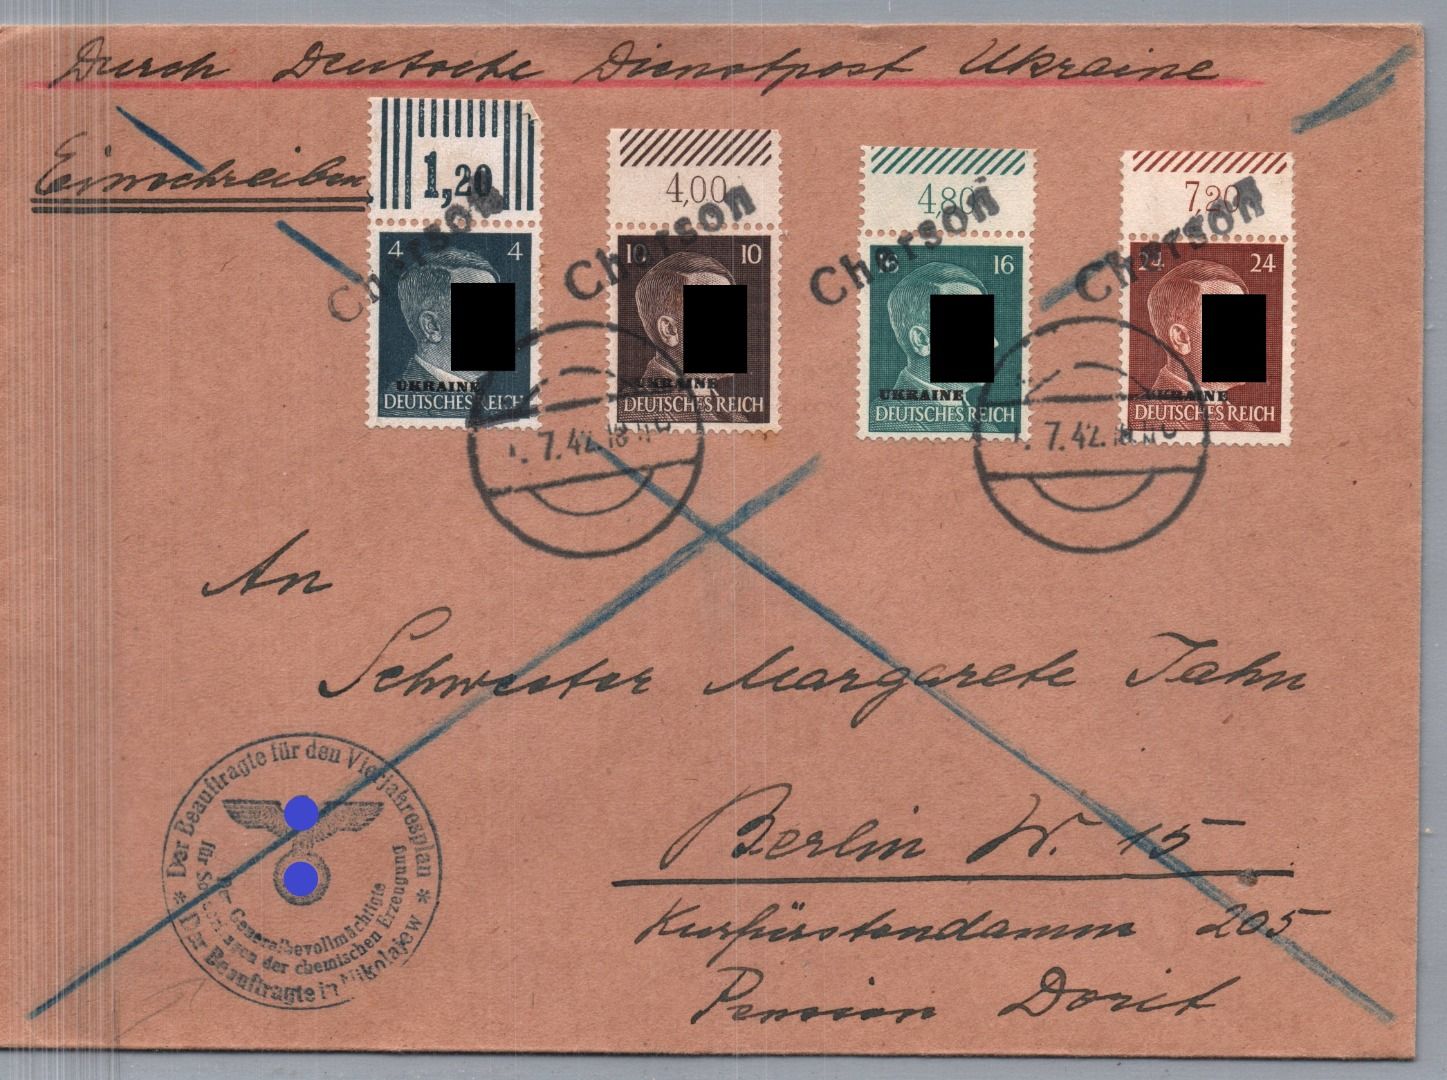 Durch Deutsche Dienstpost Ukraine
Einschreiben
1,20
4,00
4,80
7,20
Cherson
Cherson
Cherson
Cherson
4 4
10 10
16
24 24
UKRAINE
UKRAINE
UKRAINE
UKRAINE
DEUTSCHES REICH
DEUTSCHES REICH
DEUTSCHES REICH
DEUTSCHES REICH
7.42.18
7.42.18
An
Schwester Margarete Jahn
Berlin W. 15
Kurfürstendamm 205
Pension Dorit
* Der Beauftragte für den Vierjahresplan *
Der Generalbevollmächtigte
für der chemischen Erzeugung
Der Beauftragte in Nikolajew